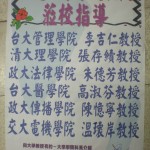 蒞校指導
台大管理學院 李吉仁教授
清大理學院 張存續教授
政大法律學院 朱德芳教授
台大醫學院 高淑芬教授
政大傳播學院 陳憶寧教授
交大電機學院 溫瓌岸教授